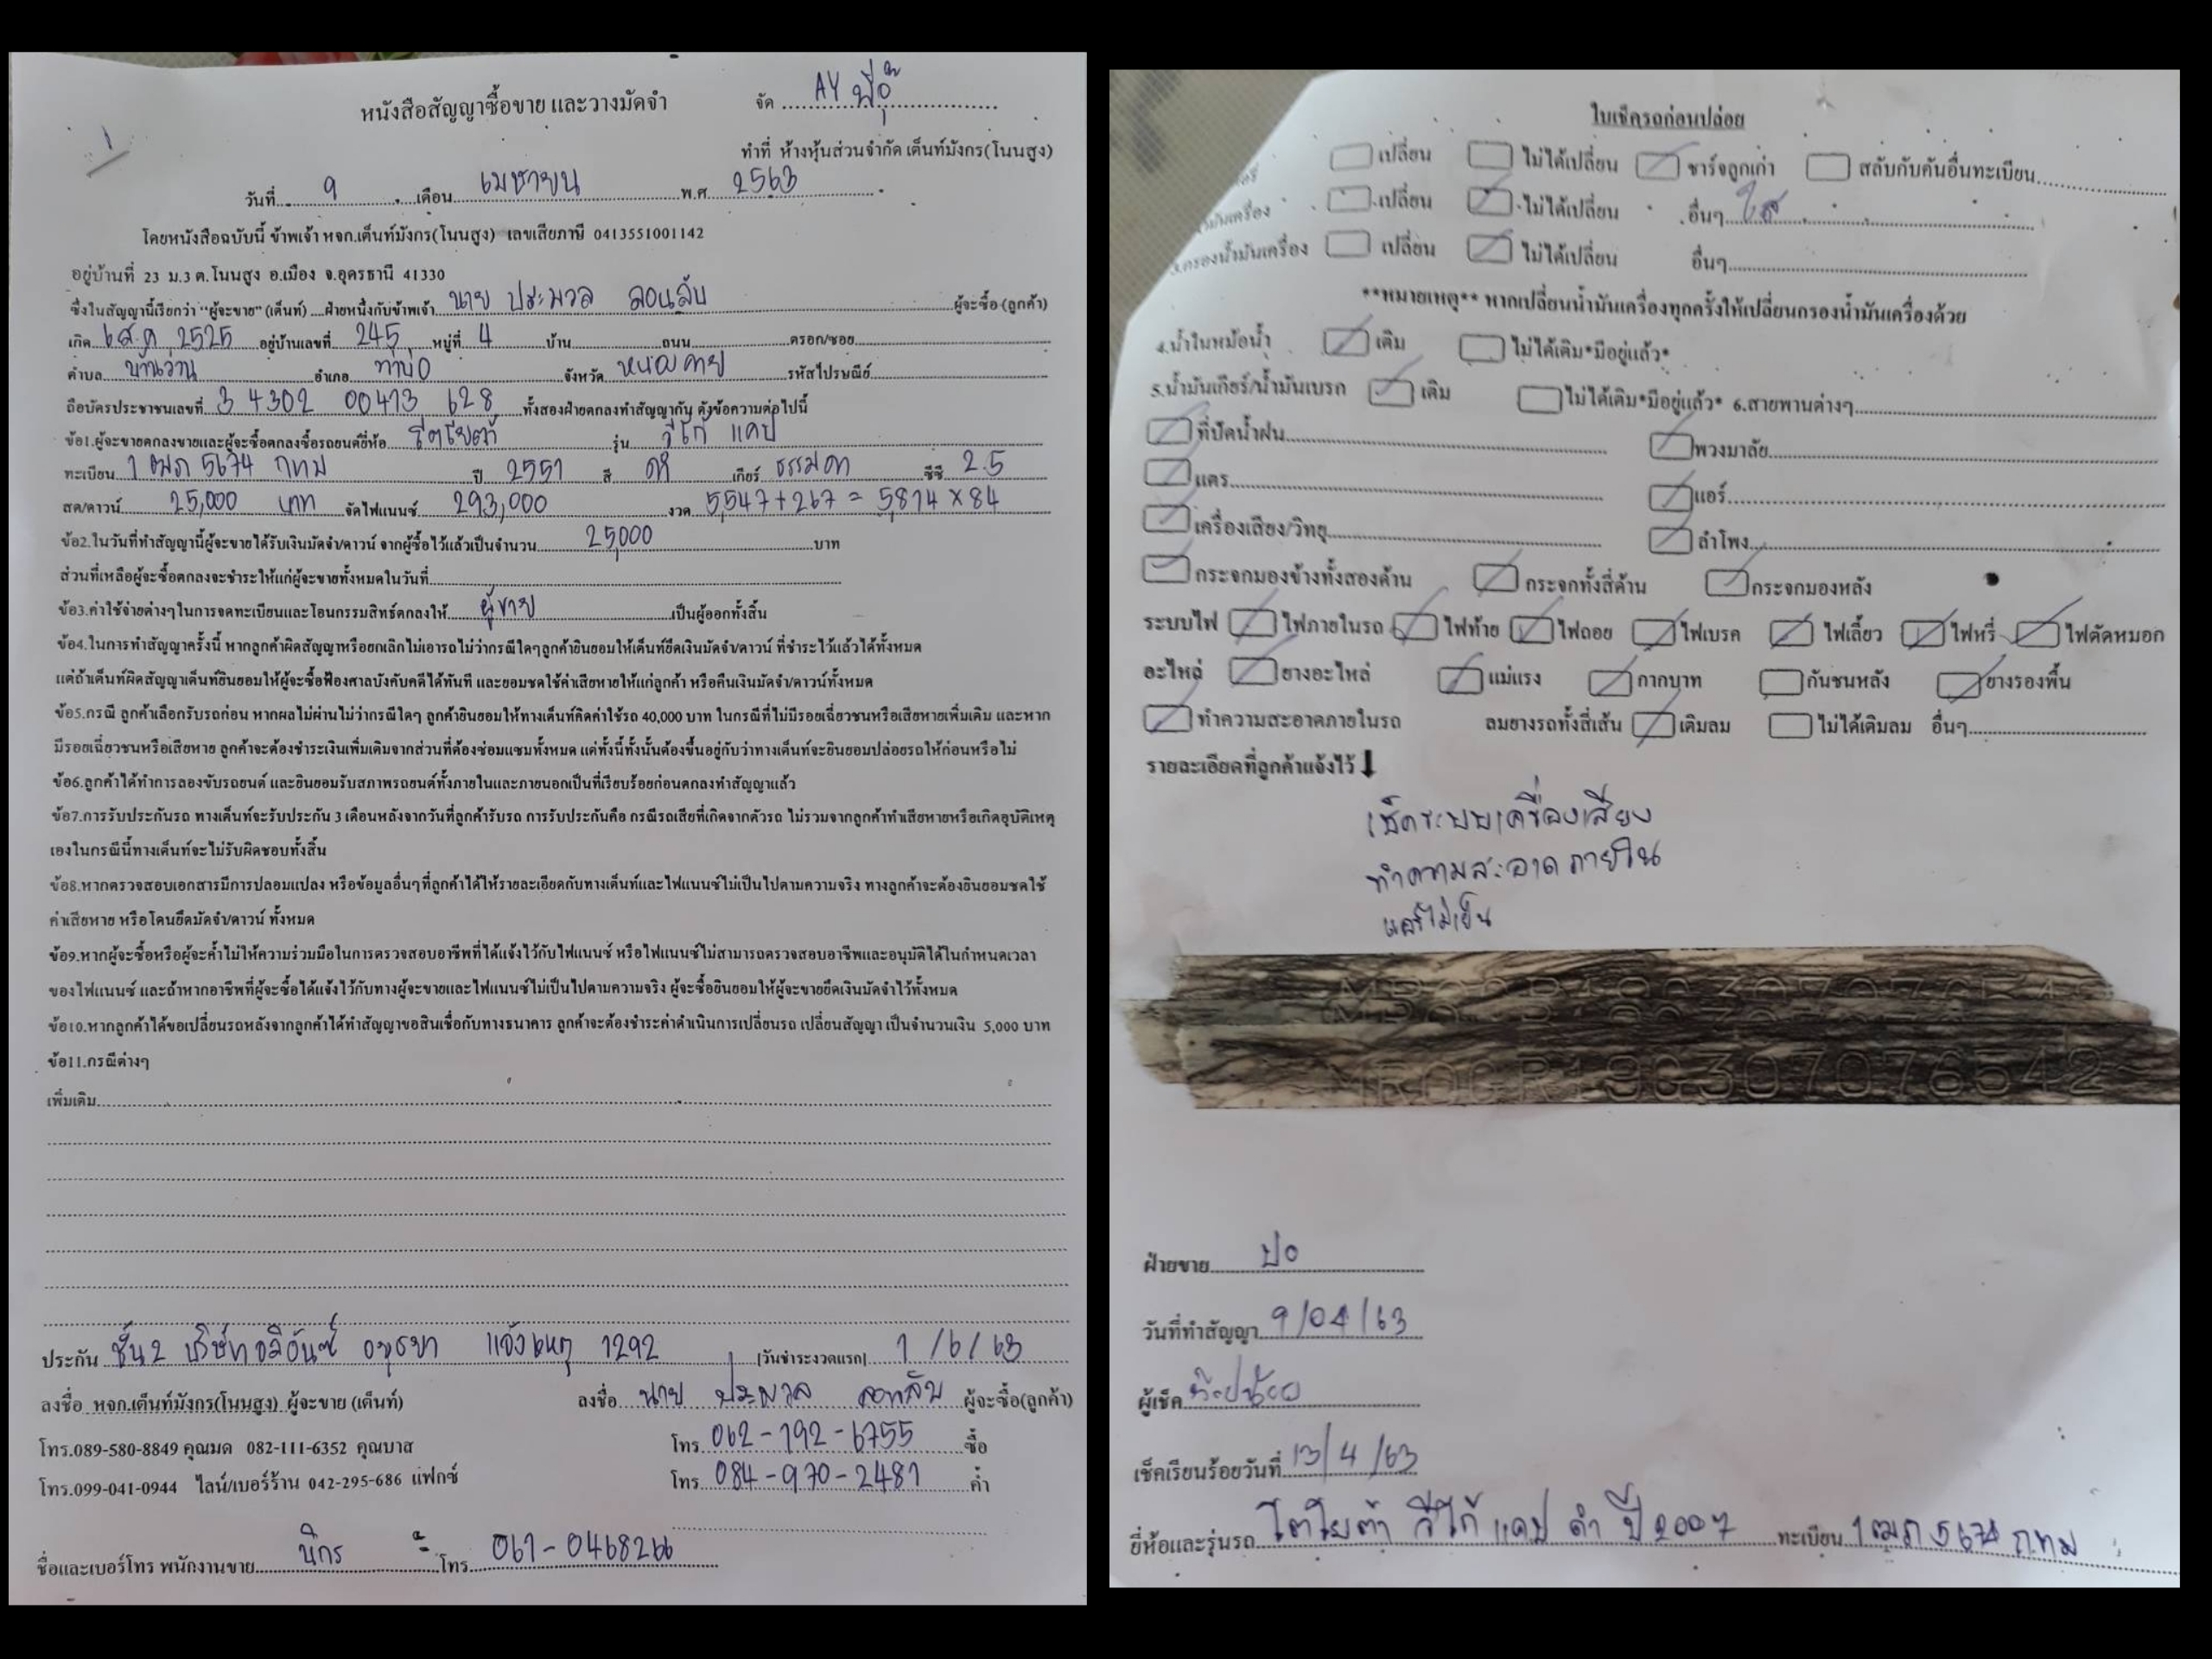 หนังสือสัญญาซื้อขาย และวางมัดจำ
จัด AY
ทำที่ ห้างหุ้นส่วนจำกัด เต็นท์มังกร(โนนสูง)
วันที่ 9 เดือน เมษายน พ.ศ. 2563
โดยหนังสือฉบับนี้ ข้าพเจ้า หจก.เต็นท์มังกร(โนนสูง) เลขเสียภาษี 0413551001142
อยู่บ้านที่ 23 ม.3 ต.โนนสูง อ.เมือง จ.อุดรธานี 41330
ซึ่งในสัญญานี้เรียกว่า "ผู้จะขาย" (เต็นท์) ....ฝ่ายหนึ่งกับข้าพเจ้า นาย ประมวล ผู้จะซื้อ (ลูกค้า)
เกิด 6 ส.ค 2525 อยู่บ้านเลขที่ 245 หมู่ที่ 4 บ้าน ถนน ตรอก/ซอย
ตำบล บ้านว่าน อำเภอ ท่าบ่อ จังหวัด หนองคาย รหัสไปรษณีย์
ถือบัตรประชาชนเลขที่ 3 4302 00413 628 ทั้งสองฝ่ายตกลงทำสัญญากัน ดังข้อความต่อไปนี้
ข้อ1.ผู้จะขายตกลงขายและผู้จะซื้อตกลงซื้อรถยนต์ยี่ห้อ รุ่น วีโก้ แคป
ทะเบียน 1 ฒภ 5674 กทม ปี 2551 สี ดำ เกียร์ ธรรมดา ซีซี 2.5
สด/ดาวน์ 25,000 บาท จัดไฟแนนซ์ 293,000 งวด 5,547+267 = 5,814 x 84
ข้อ2.ในวันที่ทำสัญญานี้ผู้จะขายได้รับเงินมัดจำ/ดาวน์ จากผู้ซื้อไว้แล้วเป็นจำนวน 25,000 บาท
ส่วนที่เหลือผู้จะซื้อตกลงจะชำระให้แก่ผู้จะขายทั้งหมดในวันที่
ข้อ3.ค่าใช้จ่ายต่างๆในการจดทะเบียนและโอนกรรมสิทธ์ตกลงให้ ผู้ขาย เป็นผู้ออกทั้งสิ้น
ข้อ4.ในการทำสัญญาครั้งนี้ หากลูกค้าผิดสัญญาหรือยกเลิกไม่เอารถไม่ว่ากรณีใดๆลูกค้ายินยอมให้เต็นท์ยึดเงินมัดจำ/ดาวน์ ที่ชำระไว้แล้วได้ทั้งหมด
แต่ถ้าเต็นท์ผิดสัญญาเต็นท์ยินยอมให้ผู้จะซื้อฟ้องศาลบังคับคดีได้ทันที และยอมชดใช้ค่าเสียหายให้แก่ลูกค้า หรือคืนเงินมัดจำ/ดาวน์ทั้งหมด
ข้อ5.กรณี ลูกค้าเลือกรับรถก่อน หากผลไม่ผ่านไม่ว่ากรณีใดๆ ลูกค้ายินยอมให้ทางเต็นท์คิดค่าใช้รถ 40,000 บาท ในกรณีที่ไม่มีรอยเฉี่ยวชนหรือเสียหายเพิ่มเติม และหาก
มีรอยเฉี่ยวชนหรือเสียหาย ลูกค้าจะต้องชำระเงินเพิ่มเติมจากส่วนที่ต้องซ่อมแซมทั้งหมด แต่ทั้งนี้ทั้งนั้นต้องขึ้นอยู่กับว่าทางเต็นท์จะยินยอมปล่อยรถให้ก่อนหรือไม่
ข้อ6.ลูกค้าได้ทำการลองขับรถยนต์ และยินยอมรับสภาพรถยนต์ทั้งภายในและภายนอกเป็นที่เรียบร้อยก่อนตกลงทำสัญญาแล้ว
ข้อ7.การรับประกันรถ ทางเต็นท์จะรับประกัน 3 เดือนหลังจากวันที่ลูกค้ารับรถ การรับประกันคือ กรณีรถเสียที่เกิดจากตัวรถ ไม่รวมจากลูกค้าทำเสียหายหรือเกิดอุบัติเหตุ
เองในกรณีนี้ทางเต็นท์จะไม่รับผิดชอบทั้งสิ้น
ข้อ8.หากตรวจสอบเอกสารมีการปลอมแปลง หรือข้อมูลอื่นๆที่ลูกค้าได้ให้รายละเอียดกับทางเต็นท์และไฟแนนซ์ไม่เป็นไปตามความจริง ทางลูกค้าจะต้องยินยอมชดใช้
ค่าเสียหาย หรือโดนยึดมัดจำ/ดาวน์ ทั้งหมด
ข้อ9.หากผู้จะซื้อหรือผู้จะค้ำไม่ให้ความร่วมมือในการตรวจสอบอาชีพที่ได้แจ้งไว้กับไฟแนนซ์ หรือไฟแนนซ์ไม่สามารถตรวจสอบอาชีพและอนุมัติได้ในกำหนดเวลา
ของไฟแนนซ์ และถ้าหากอาชีพที่ผู้จะซื้อได้แจ้งไว้กับทางผู้จะขายและไฟแนนซ์ไม่เป็นไปตามความจริง ผู้จะซื้อยินยอมให้ผู้จะขายยึดเงินมัดจำไว้ทั้งหมด
ข้อ10.หากลูกค้าได้ขอเปลี่ยนรถหลังจากลูกค้าได้ทำสัญญาขอสินเชื่อกับทางธนาคาร ลูกค้าจะต้องชำระค่าดำเนินการเปลี่ยนรถ เปลี่ยนสัญญา เป็นจำนวนเงิน 5,000 บาท
ข้อ11.กรณีต่างๆ
เพิ่มเติม
ประกัน ชั้น2 บริษัท อลิอันซ์ อยุธยา แจ้งเหตุ 1292 [วันชำระงวดแรก] 1/6/63
ลงชื่อ หจก.เต็นท์มังกร(โนนสูง) ผู้จะขาย (เต็นท์) ลงชื่อ นาย ประมวล ผู้จะซื้อ(ลูกค้า)
โทร.089-580-8849 คุณมด 082-111-6352 คุณบาส โทร 062-192-6755 ซื้อ
โทร.099-041-0944 ไลน์/เบอร์ร้าน 042-295-686 แฟกซ์ โทร 084-970-2481 ค้ำ
ชื่อและเบอร์โทร พนักงานขาย นิกร โทร 061-0468266
ใบเช็ครถก่อนปล่อย
เปลี่ยน ไม่ได้เปลี่ยน ชาร์จลูกเก่า สลับกับคันอื่นทะเบียน
น้ำมันเครื่อง เปลี่ยน ไม่ได้เปลี่ยน อื่นๆ ใส
3.กรองน้ำมันเครื่อง เปลี่ยน ไม่ได้เปลี่ยน อื่นๆ
**หมายเหตุ** หากเปลี่ยนน้ำมันเครื่องทุกครั้งให้เปลี่ยนกรองน้ำมันเครื่องด้วย
4.น้ำในหม้อน้ำ เติม ไม่ได้เติม*มีอยู่แล้ว*
5.น้ำมันเกียร์/น้ำมันเบรก เติม ไม่ได้เติม*มีอยู่แล้ว* 6.สายพานต่างๆ
ที่ปัดน้ำฝน พวงมาลัย
แตร แอร์
เครื่องเสียง/วิทยุ ลำโพง
กระจกมองข้างทั้งสองด้าน กระจกทั้งสี่ด้าน กระจกมองหลัง
ระบบไฟ ไฟภายในรถ ไฟท้าย ไฟถอย ไฟเบรค ไฟเลี้ยว ไฟหรี่ ไฟตัดหมอก
อะไหล่ ยางอะไหล่ แม่แรง กากบาท กันชนหลัง ยางรองพื้น
ทำความสะอาดภายในรถ ลมยางรถทั้งสี่เส้น เติมลม ไม่ได้เติมลม อื่นๆ
รายละเอียดที่ลูกค้าแจ้งไว้
เช็คระบบเครื่องเสียง
ทำความสะอาด ภายใน
แอร์ไม่เย็น
MR0CR19G307076542
ฝ่ายขาย ปอ
วันที่ทำสัญญา 9/04/63
ผู้เช็ค
เช็คเรียบร้อยวันที่ 13/4/63
ยี่ห้อและรุ่นรถ โตโยต้า วีโก้ แคป ดำ ปี 2007 ทะเบียน 1 ฒภ 5674 กทม